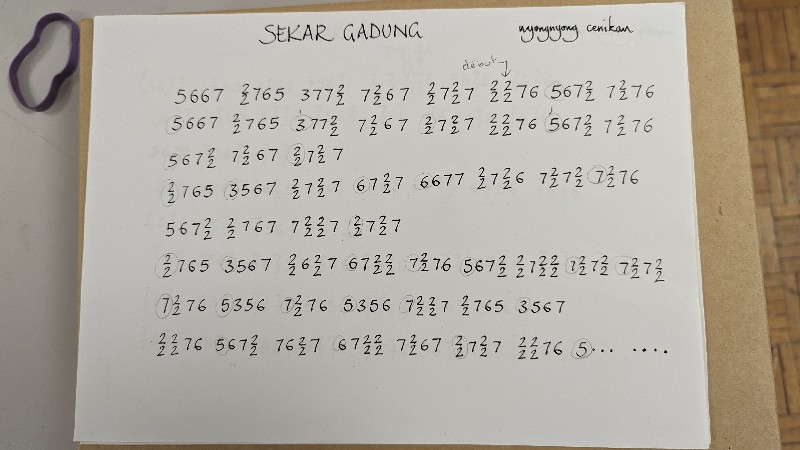 SEKAR GADUNG nyongnyong cenikan
début
5667 2/2765 3772/2 72/267 2/272/27 2/22/276 5672/2 72/276
5667 2/2765 3772/2 72/267 2/272/27 2/22/276 5672/2 72/276
5672/2 72/267 2/272/27
2/2765 3567 2/272/27 672/27 6677 2/272/26 72/272/2 72/276
5672/2 2/2767 72/22/27 2/272/27
2/2765 3567 2/262/27 672/22/2 72/276 5672/2 2/272/22/2 72/272/2 72/272/2
72/276 5356 72/276 5356 72/22/27 2/2765 3567
2/22/276 5672/2 762/27 672/22/2 72/267 2/272/27 2/22/276 5... ....